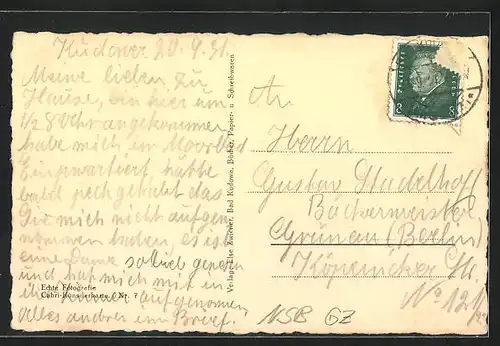 Kudowa 20.9.31.
Meine lieben zu
Hause, bin hier um
1/2 8 Uhr angekommen
habe mich im Moorbad
Einquartiert, hätte
bald pech gehabt das
Sie mich nicht aufgen
nommen haben, es ist
eine Dame so lieb gewesen
und, hat mich mit in
ihr Zimmer aufgenommen
alles andere im Brief.
Echte Fotografie
Cabri-Künstlerkarte Nr. 7
Verlag: Else Zwiener, Bad Kudowa, Bücher, Papier- u. Schreibwaren
DEUTSCHES REICH
8 8
An
Herrn
Gustav Stadelhoff
Bäckermeister
Grünau (Berlin)
Köpenicker Str.
No 121
NSB GZ